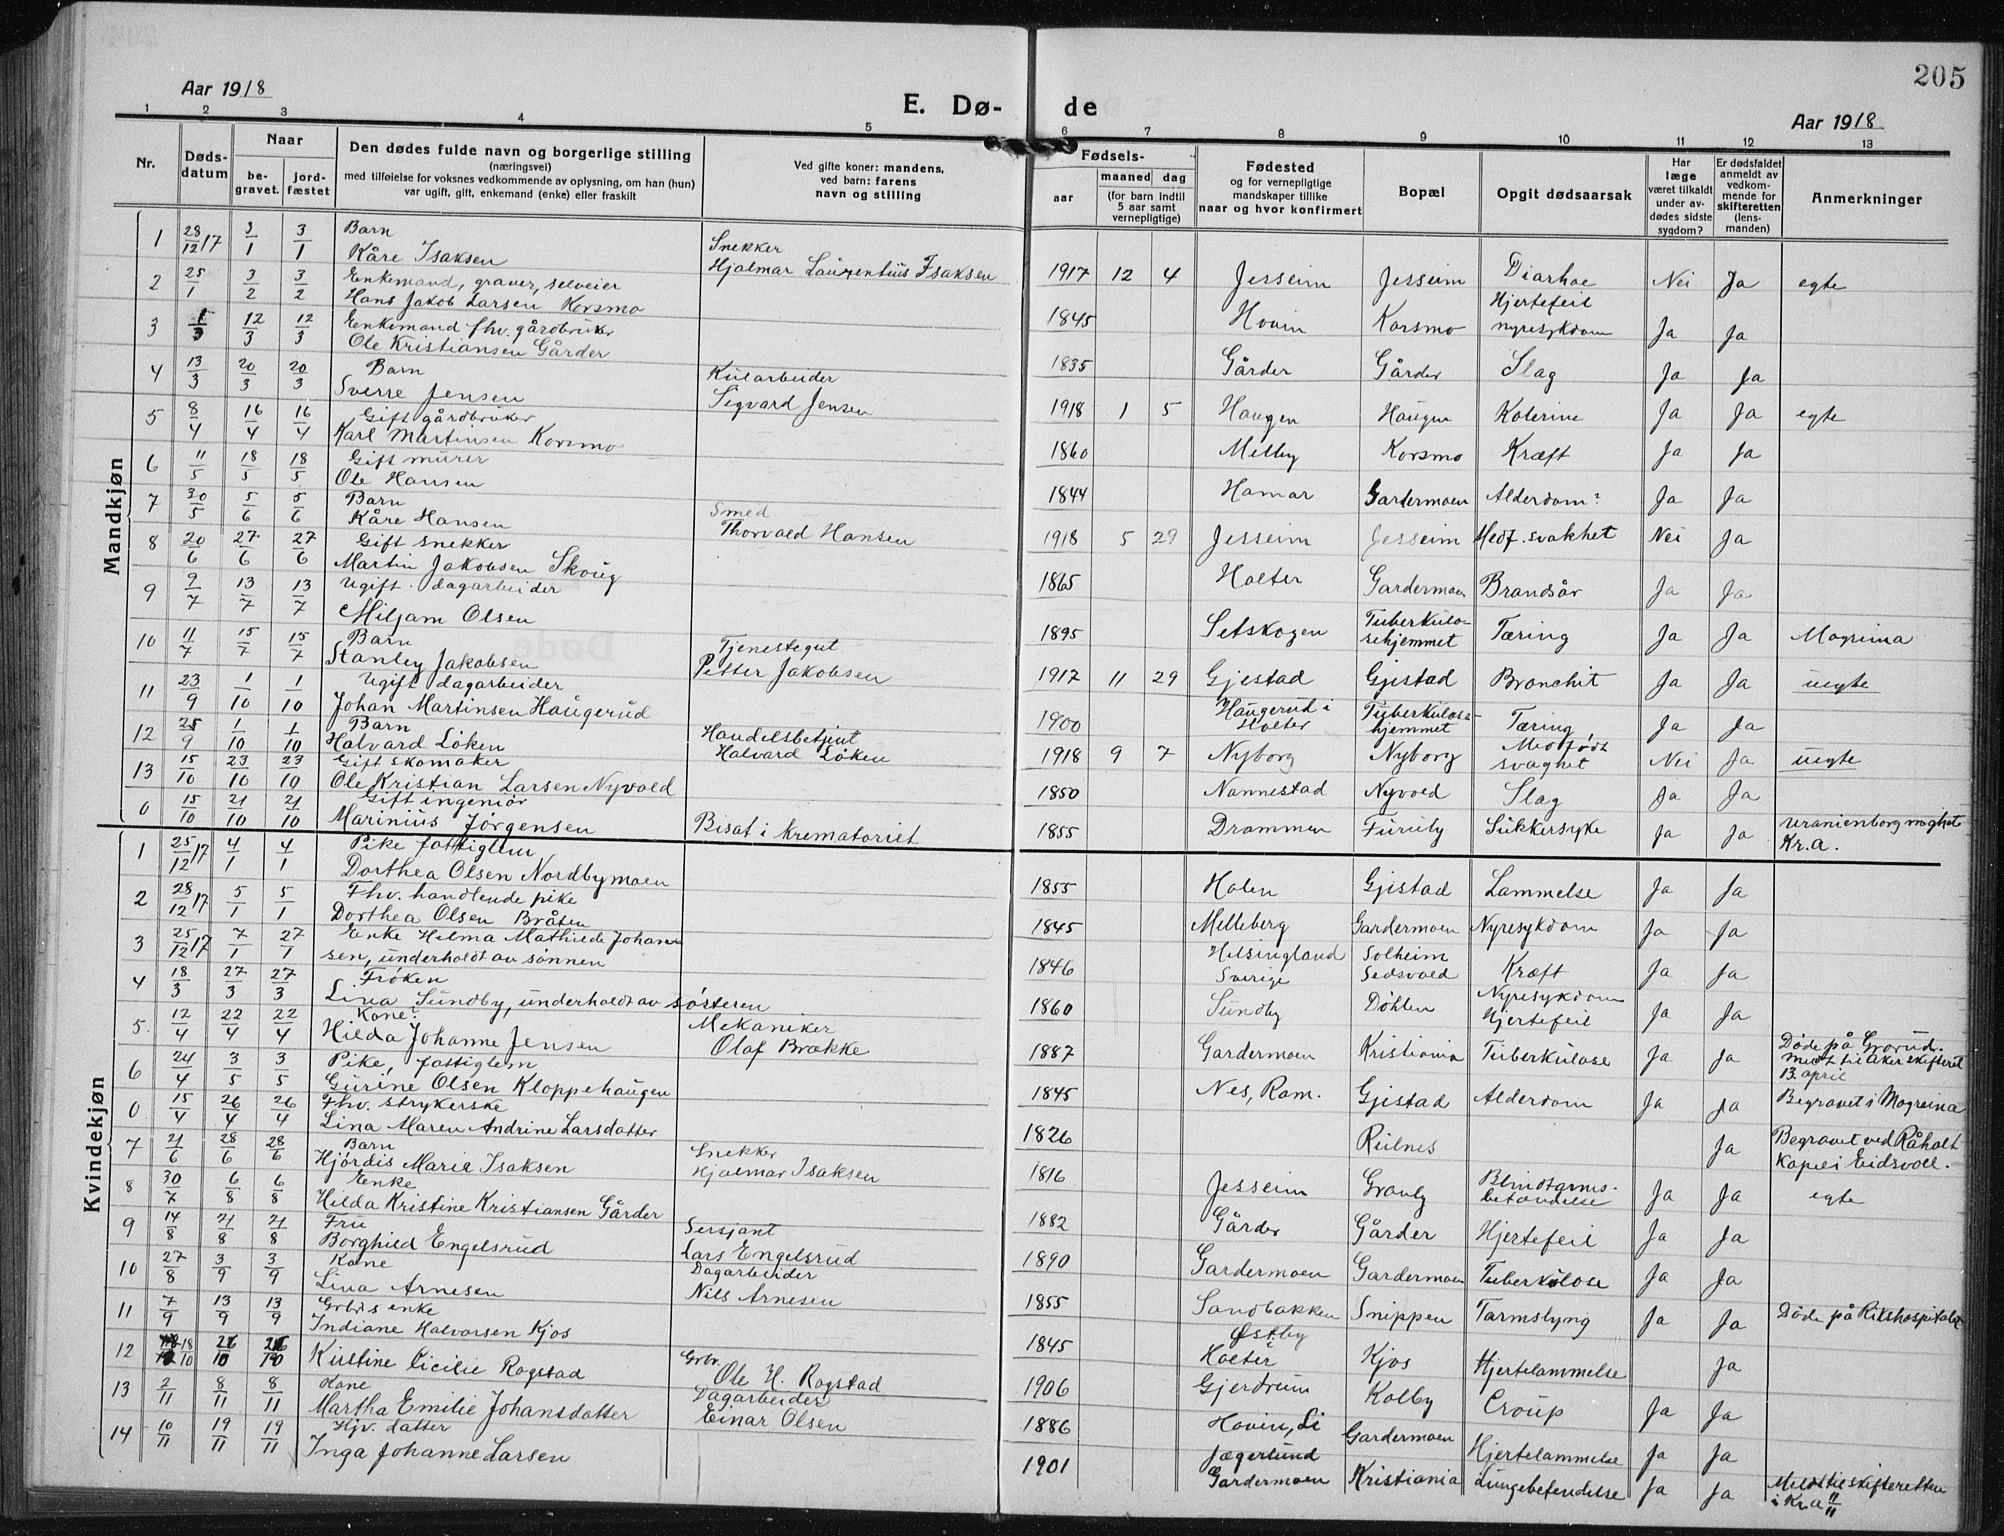 205
Aar 1918
E. Dø- de
Aar 1918
1 2 3 4 5 6 7 8 9 10 11 12 13
Nr.
Døds-
datum
Naar
be-
gravet.
jord-
fæstet
Den dødes fulde navn og borgerlige stilling
(næringsvei)
med tilføielse for voksnes vedkommende av oplysning, om han (hun)
var ugift, gift, enkemand (enke) eller fraskilt
Ved gifte koner: mandens,
ved barn: farens
navn og stilling
Fødsels-
aar
maaned dag
(for barn indtil
5 aar samt
vernepligtige)
Fødested
og for vernepligtige
mandskaper tillike
naar og hvor konfirmert
Bopæl
Opgit dødsaarsak
Har
læge
været tilkaldt
under av-
dødes sidste
sygdom?
Er dødsfaldet
anmeldt av
vedkom-
mende for
skifteretten
(lens-
manden)
Anmerkninger
Mandkjøn
1 28/12 17 3/1 3/1 Barn Snekker
Kåre Isaksen Hjalmar Laurentius Isaksen 1917 12 4 Jesseim Jesseim Diarhoe Nei Ja egte
2 25/1 3/2 3/2 Enkemand, graver, selveier
Hans Jakob Larsen Korsmo 1845 Hovin Korsmo Hjertefeil nyresykdom Ja Ja
3 1/3 12/3 12/3 Enkemand fhv. gårdbruker
Ole Kristiansen Gårder 1835 Gårder Gårder Slag Ja Ja
4 13/3 20/3 20/3 Barn Kularbeider
Sverre Jensen Sigvard Jensen 1918 1 5 Haugen Haugen Kolerine Ja Ja egte
5 8/4 16/4 16/4 Gift gårdbruker
Karl Martinsen Korsmo 1860 Melby Korsmo Kræft Ja Ja
6 11/5 18/5 18/5 Gift murer
Ole Hansen 1844 Hamar Gardermoen Alderdom? Ja Ja
7 30/5 5/6 5/6 Barn Smed
Kåre Hansen Thorvald Hansen 1918 5 29 Jesseim Jesseim Medf. svakhet Nei Ja
8 20/6 27/6 27/6 Gift snekker
Martin Jakobsen Skoug 1865 Holter Gardermoen Brandsår Ja Ja
9 9/7 13/7 13/7 Ugift dagarbeider
Miljam Olsen 1895 Setskogen Tuberkulo-
sehjemmet Tæring Ja Ja Mogreina
10 11/7 15/7 15/7 Barn Tjenestegut
Stanley Jakobsen Petter Jakobsen 1917 11 29 Gjestad Gjistad Bronchit Ja Ja uegte
11 23/9 1/10 1/10 Ugift dagarbeider
Johan Martinsen Haugerud 1900 Haugerud i
Holter Tuberkulose-
hjemmet Tæring Ja Ja
12 25/9 1/10 1/10 Barn Handelsbetjent
Halvard Löken Halvard Löken 1918 9 7 Nyborg Nyborg Medfødt
svaghet Nei Ja uegte
13 15/10 23/10 23/10 Gift skomaker
Ole Kristian Larsen Nyvold 1850 Nannestad Nyvold Slag Ja Ja
0 15/10 21/10 21/10 Gift ingeniør
Marinius Jørgensen Bisat i krematoriet 1855 Drammen Furuly Sukkersyke Ja Ja Uranienborg mght
Kr.a.
Kvindekjøn
1 25/12 17 4/1 4/1 Pike fattiglem
Dorthea Olsen Nordbymoen 1855 Holen Gjistad Lammelse Ja Ja
2 28/12 17 5/1 5/1 Fhv. handlende pike
Dorthea Olsen Bråten 1845 Melleberg Gardermoen Nyresykdom Ja Ja
3 25/12 17 7/1 27/1 Enke Hilma Mathilde Johan-
sen, underholdt av sønnen 1846 Helsingland
Sverige Solheim
Sedsvold Kræft Ja Ja
4 18/3 27/3 27/3 Frøken
Lina Sundby, underholdt av søsteren 1860 Sundby Döhlen Nyresykdom
Hjertefeil Ja Ja
5 12/4 22/4 22/4 Kone? Mekaniker
Hilda Johanne Jensen Olaf Brække 1887 Gardermoen Kristiania Tuberkulose Ja Ja Døde på Grorud.
Meldt til Aker skifteret
13. april
6 24/4 3/5 3/5 Pike, fattiglem
Gurine Olsen Kloppehaugen 1845 Nes, Rom. Gjistad Alderdom Ja Ja Begravet i Mogreina
0 15/4 26/4 26/4 Fhv. strykerske
Lina Maren Andrine Larsdatter 1826 Rulnes Ja Begravet ved Råholt
Kapel i Eidsvoll.
7 21/6 28/6 28/6 Barn Snekker
Hjördis Marie Isaksen Hjalmar Isaksen 1816 Jesseim Granly Blindtarms-
betændelse Ja Ja egte
8 30/7 6/8 6/8 Enke
Hilda Kristine Kristiansen Gårder 1882 Gårder Gårder Hjertefeil Ja Ja
9 14/8 21/8 21/8 Fru Sersjant
Borghild Engelsrud Lars Engelsrud 1890 Gardermoen Gardermoen Tuberkulose Ja Ja
10 27/8 3/9 3/9 Kone Dagarbeider
Lina Arnesen Nils Arnesen 1855 Sandbakken Snippen Tarmslyng Ja Ja Døde på Rikshospitalet
11 7/9 13/9 13/9 Grbrs enke
Indiane Halvorsen Kjos 1845 Østby
Holter Kjos Hjertelammelse Ja
12 18/10 26/10 26/10 Kirstine Cicilie Rogstad Grbr.
Ole H. Rogstad 1906 Gjerdrum Kolby Croup Ja Ja
13 2/11 8/11 8/11 Kone Dagarbeider
Martha Emilie Johansdatter Einar Olsen 1886 Hovin, Li Gardermoen Hjertelammelse Ja Ja
14 10/11 19/11 19/11 Hjv. datter
Inga Johanne Larsen 1901 Jægerlund
Gardermoen Kristiania Lungebetendelse Ja Ja Meldt til skifteretten
i Kr.a 11/11